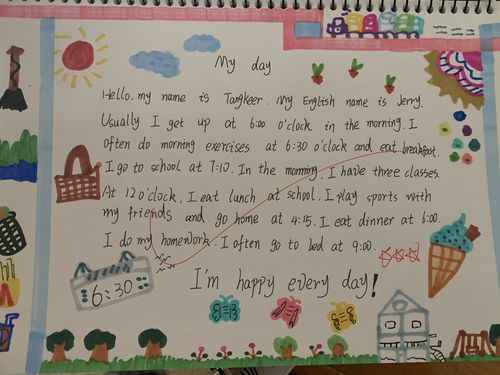 My day
Hello. my name is Tangkeer. My English name is Jerry.
Usually I get up at 6:00 o'clock in the morning. I
often do morning exercises at 6:30 o'clock and eat breakfast.
I go to school at 7:10. In the morning, I have three classes.
At 12 o'clock, I eat lunch at school. I play sports with
my friends and go home at 4:15. I eat dinner at 6:00.
I do my homework. I often go to bed at 9:00.
I'm happy every day!
6:30